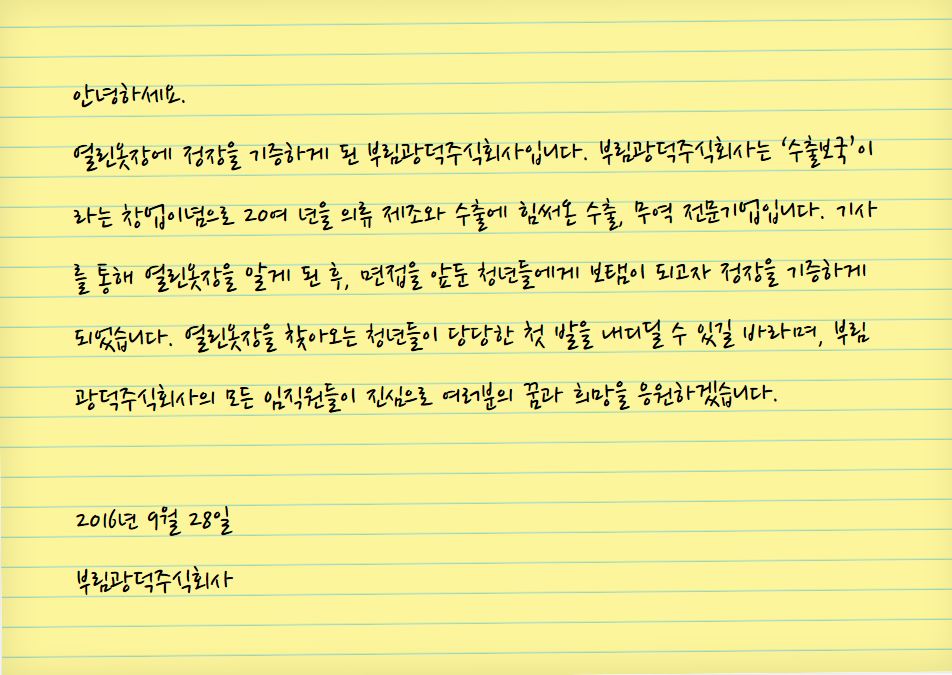 안녕하세요.
열린옷장에 정장을 기증하게 된 부림광덕주식회사입니다. 부림광덕주식회사는 '수출보국'이
라는 창업이념으로 20여 년을 의류 제조와 수출에 힘써온 수출, 무역 전문기업입니다. 기사
를 통해 열린옷장을 알게 된 후, 면접을 앞둔 청년들에게 보탬이 되고자 정장을 기증하게
되었습니다. 열린옷장을 찾아오는 청년들이 당당한 첫 발을 내디딜 수 있길 바라며, 부림
광덕주식회사의 모든 임직원들이 진심으로 여러분의 꿈과 희망을 응원하겠습니다.
2016년 9월 28일
부림광덕주식회사